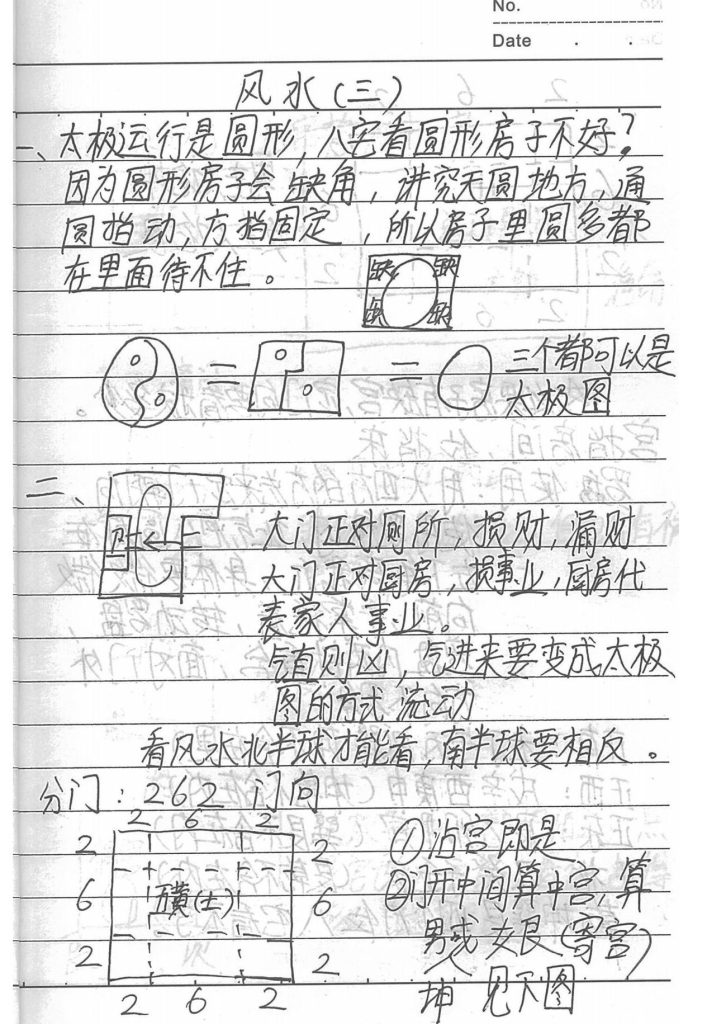 No.
Date . .
风水(三)
一、太极运行是圆形,八宅看圆形房子不好?
因为圆形房子会缺角,讲究天圆地方,通
圆指动,方指固定,所以房子里圆多都
在里面待不住。
缺 缺
缺 缺
= = 三个都可以是
太极图
二、
大门正对厕所,损财,漏财
大门正对厨房,损事业,厨房代
表家人事业。
气直则凶,气进来要变成太极
图的方式流动
看风水北半球才能看,南半球要相反。
分门:262 门向
2 6 2
2 2 ①沾宫即是
6 五黄(土) 6 ②门开中间算中宫,算
男或女艮(寄宫)
2 2 坤 见下图
2 6 2